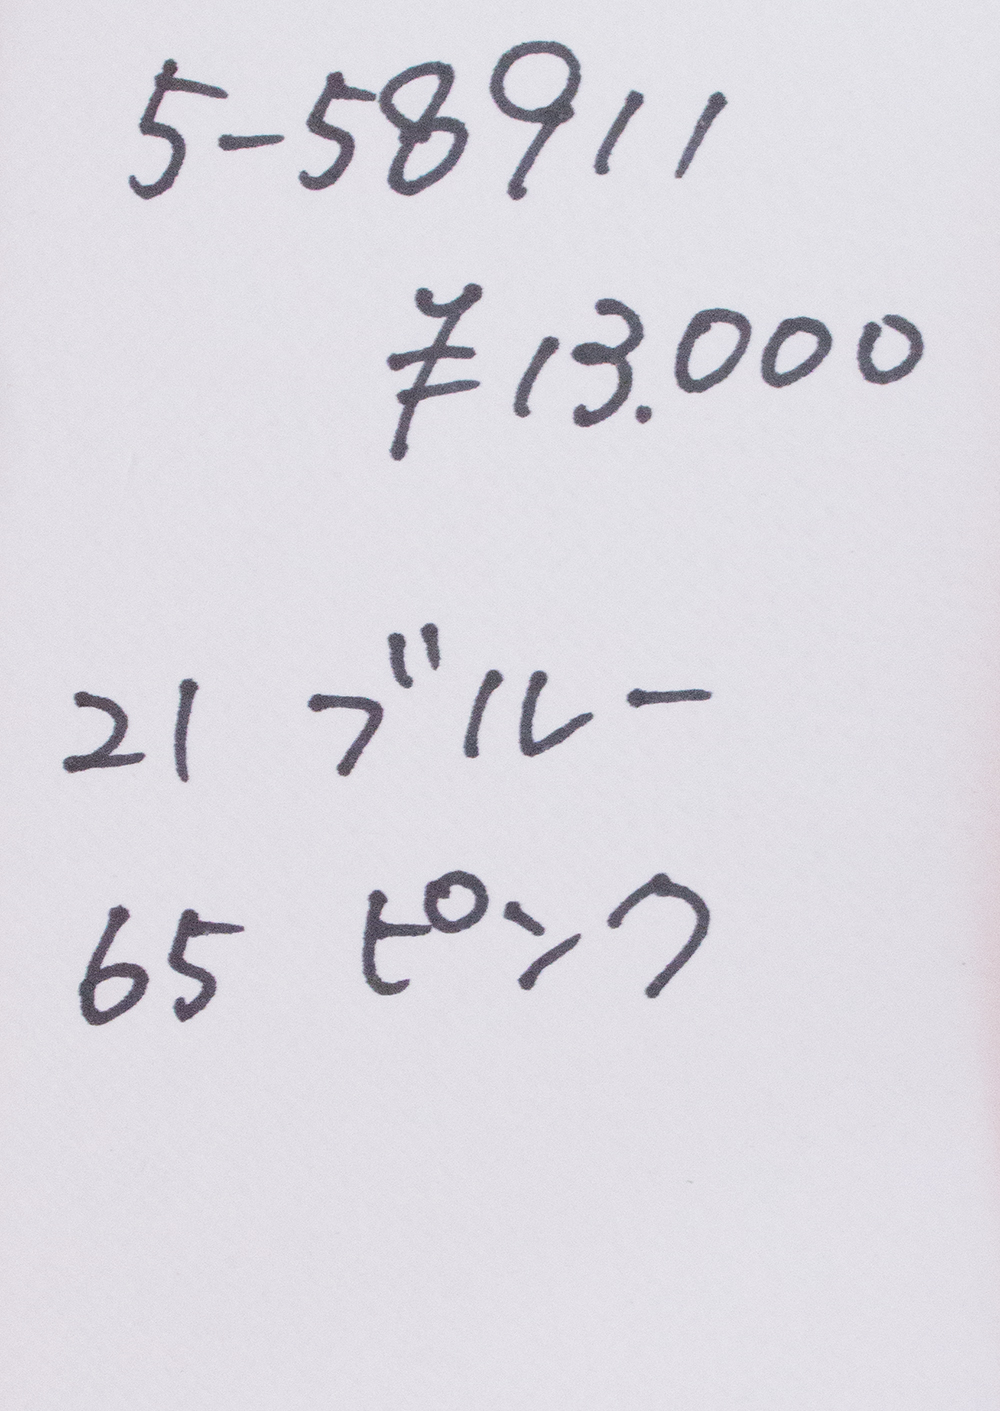 5-58911
¥13.000
21 ブルー
65 ピンク